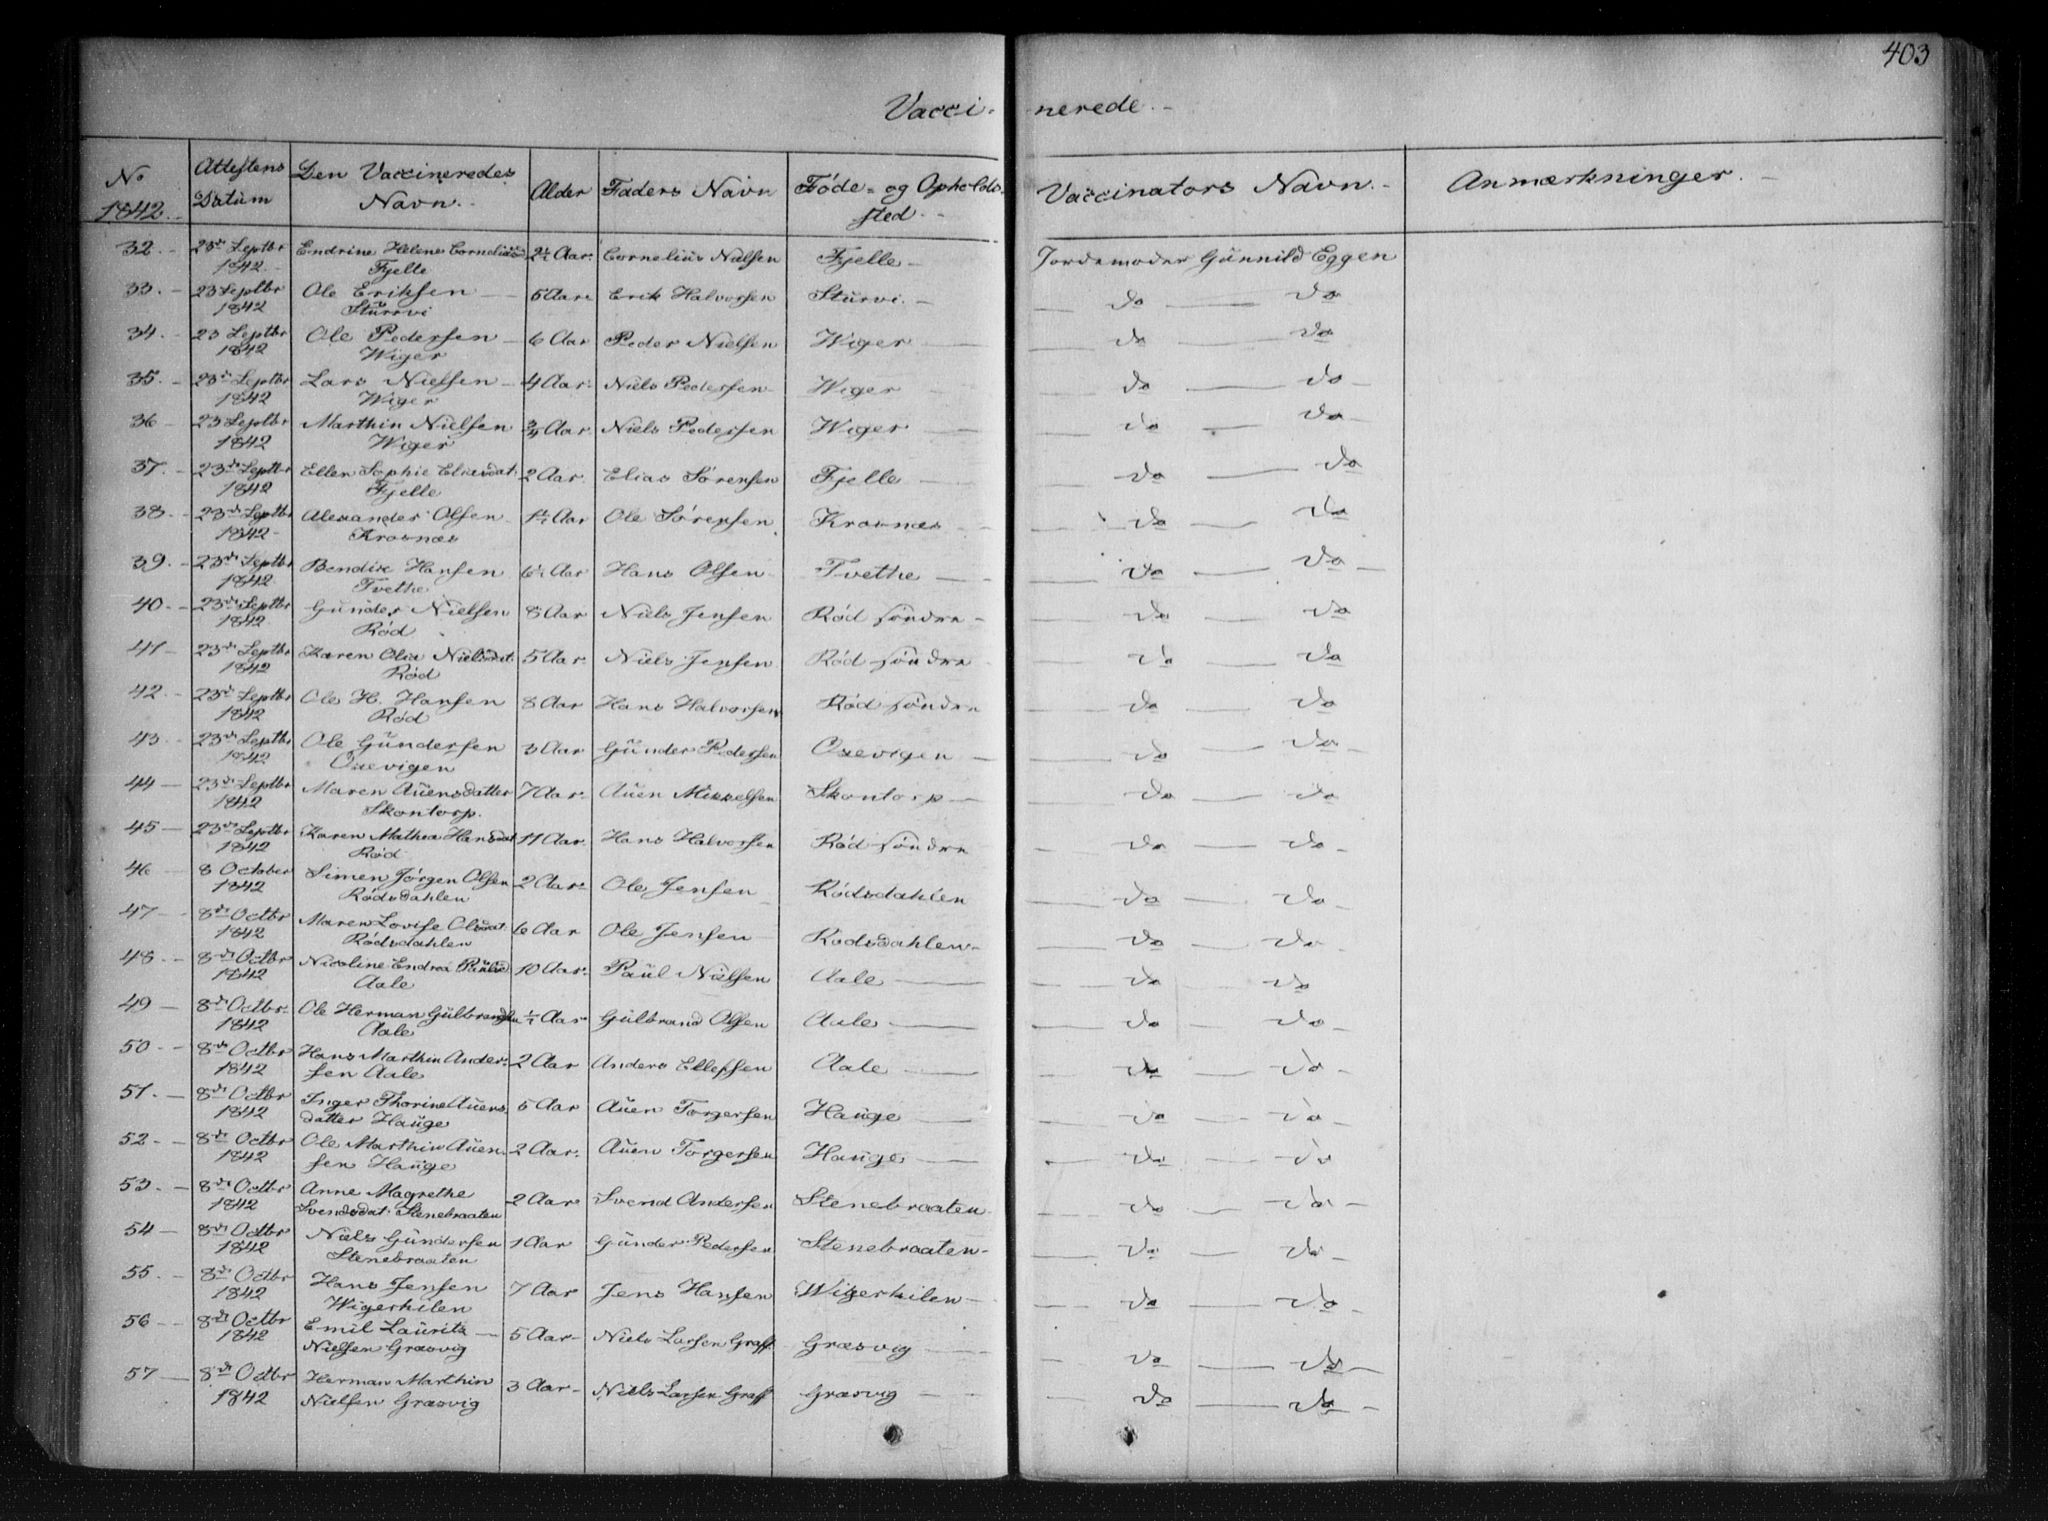 403
Vacci- nerede.-
No 1842.- | Attestens Datum | Den Vaccineredes Navn.- | Alder | Faders Navn | Føde- og Opholdssted.- | Vaccinators Navn.- | Anmærkninger.-
32.- 23de Septbr 1842.- Endrine Helene Fjelle Aar. Cornelius Nielsen Fjelle- Jordemoder Gunnild Eggen
33.- 23 Septbr 1842 Ole Eriksen Sturrvi 5 Aar Erik Halvorsen Sturvi.- do do
34.- 23 Septbr 1842 Ole Pedersen- Wiger 6 Aar Peder Nielsen Wiger do do
35.- 23de Septbr 1842 Lars Nielsen- Wiger 4 Aar. Niels Pedersen Wiger do do-
36- 23 Septbr 1842 Marthin Nielsen Wiger 3/4 Aar. Niels Pedersen Wiger do do-
37.- 23de Septbr 1842 Ellen Sophie Eliasdat: Fjelle 2 Aar. Elias Sørensen Fjelle do do
38.- 23de Septbr 1842- Alexander Olsen Krosnæs Aar Ole Sørensen Krosnæs do do
39.- 23de Septbr 1842 Bendix Hansen Tvethe Aar Hans Olsen Tvethe do do-
40.- 23de Septbr 1842 Gunder Nielsen Rød 8 Aar Niels Jensen Rød søndre- do do
41- 23de Septbr 1842 Karen Olia Nielsdat: Rød 5 Aar. Niels Jensen Rød søndre do do
42.- 23de Septbr 1842 Ole H. Hansen Rød 8 Aar Hans Halvorsen Rød søndre do do
43.- 23de Septbr 1842 Ole Gundersen Oxevigen 3 Aar Gunder Pedersen Oxevigen do do-
44- 23de Septbr 1842 Maren Auensdatter Skontorp. 7 Aar. Auen Mikkelsen Skontorp- do do
45- 23de Septbr 1842 Karen Mathea Hansdat Rød 11 Aar. Hans Halvorsen Rød søndre do do-
46- 8 October 1842 Simen Jørgen Olsen Rødsdahlen 2 Aar. Ole Jensen Rødsdahlen do do-
47- 8de Octbr 1842 Maren Lovise Olsdat: Rødsdahlen 6 Aar Ole Jensen Rødsdahlen- do do-
48.- 8de Octbr 1842 Nicoline Endrea Aale 10 Aar. Paul Nielsen Aale do do
49- 8de Octbr. 1842 Ole Herman Gulbrandsen Aale Aar Gulbrand Olsen Aale do do-
50.- 8de Octbr 1842 Hans Marthin Andersen Aale 2 Aar Anders Ellefsen Aale do do-
51.- 8de Octbr 1842 Inger Thorine Auensdatter Hauge 5 Aar Auen Torgersen Hauge do do-
52.- 8de Octbr 1842 Ole Marthin Auensen Hauge 2 Aar. Auen Torgersen Hauge do do
53.- 8de Octbr 1842 Anne Magrethe Svendsdat: Stenebraaten 2 Aar Svend Andersen Stenebraaten do do-
54- 8de Octbr 1842 Niels Gundersen Stenebraaten 1 Aar Gunder Pedersen Stenebraaten- do do-
55.- 8de Octbr 1842 Hans Jensen Wigerkilen 7 Aar Jens Hansen Wigerkilen- do do-
56- 8de Octbr 1842 Emil Lauritz- Nielsen Græsvig 5 Aar- Niels Larsen Graff Græsvig do do-
57- 8de Octbr 1842 Herman Marthin Nielsen Græsvig 3 Aar- Niels Larsen Graff Græsvig do do-